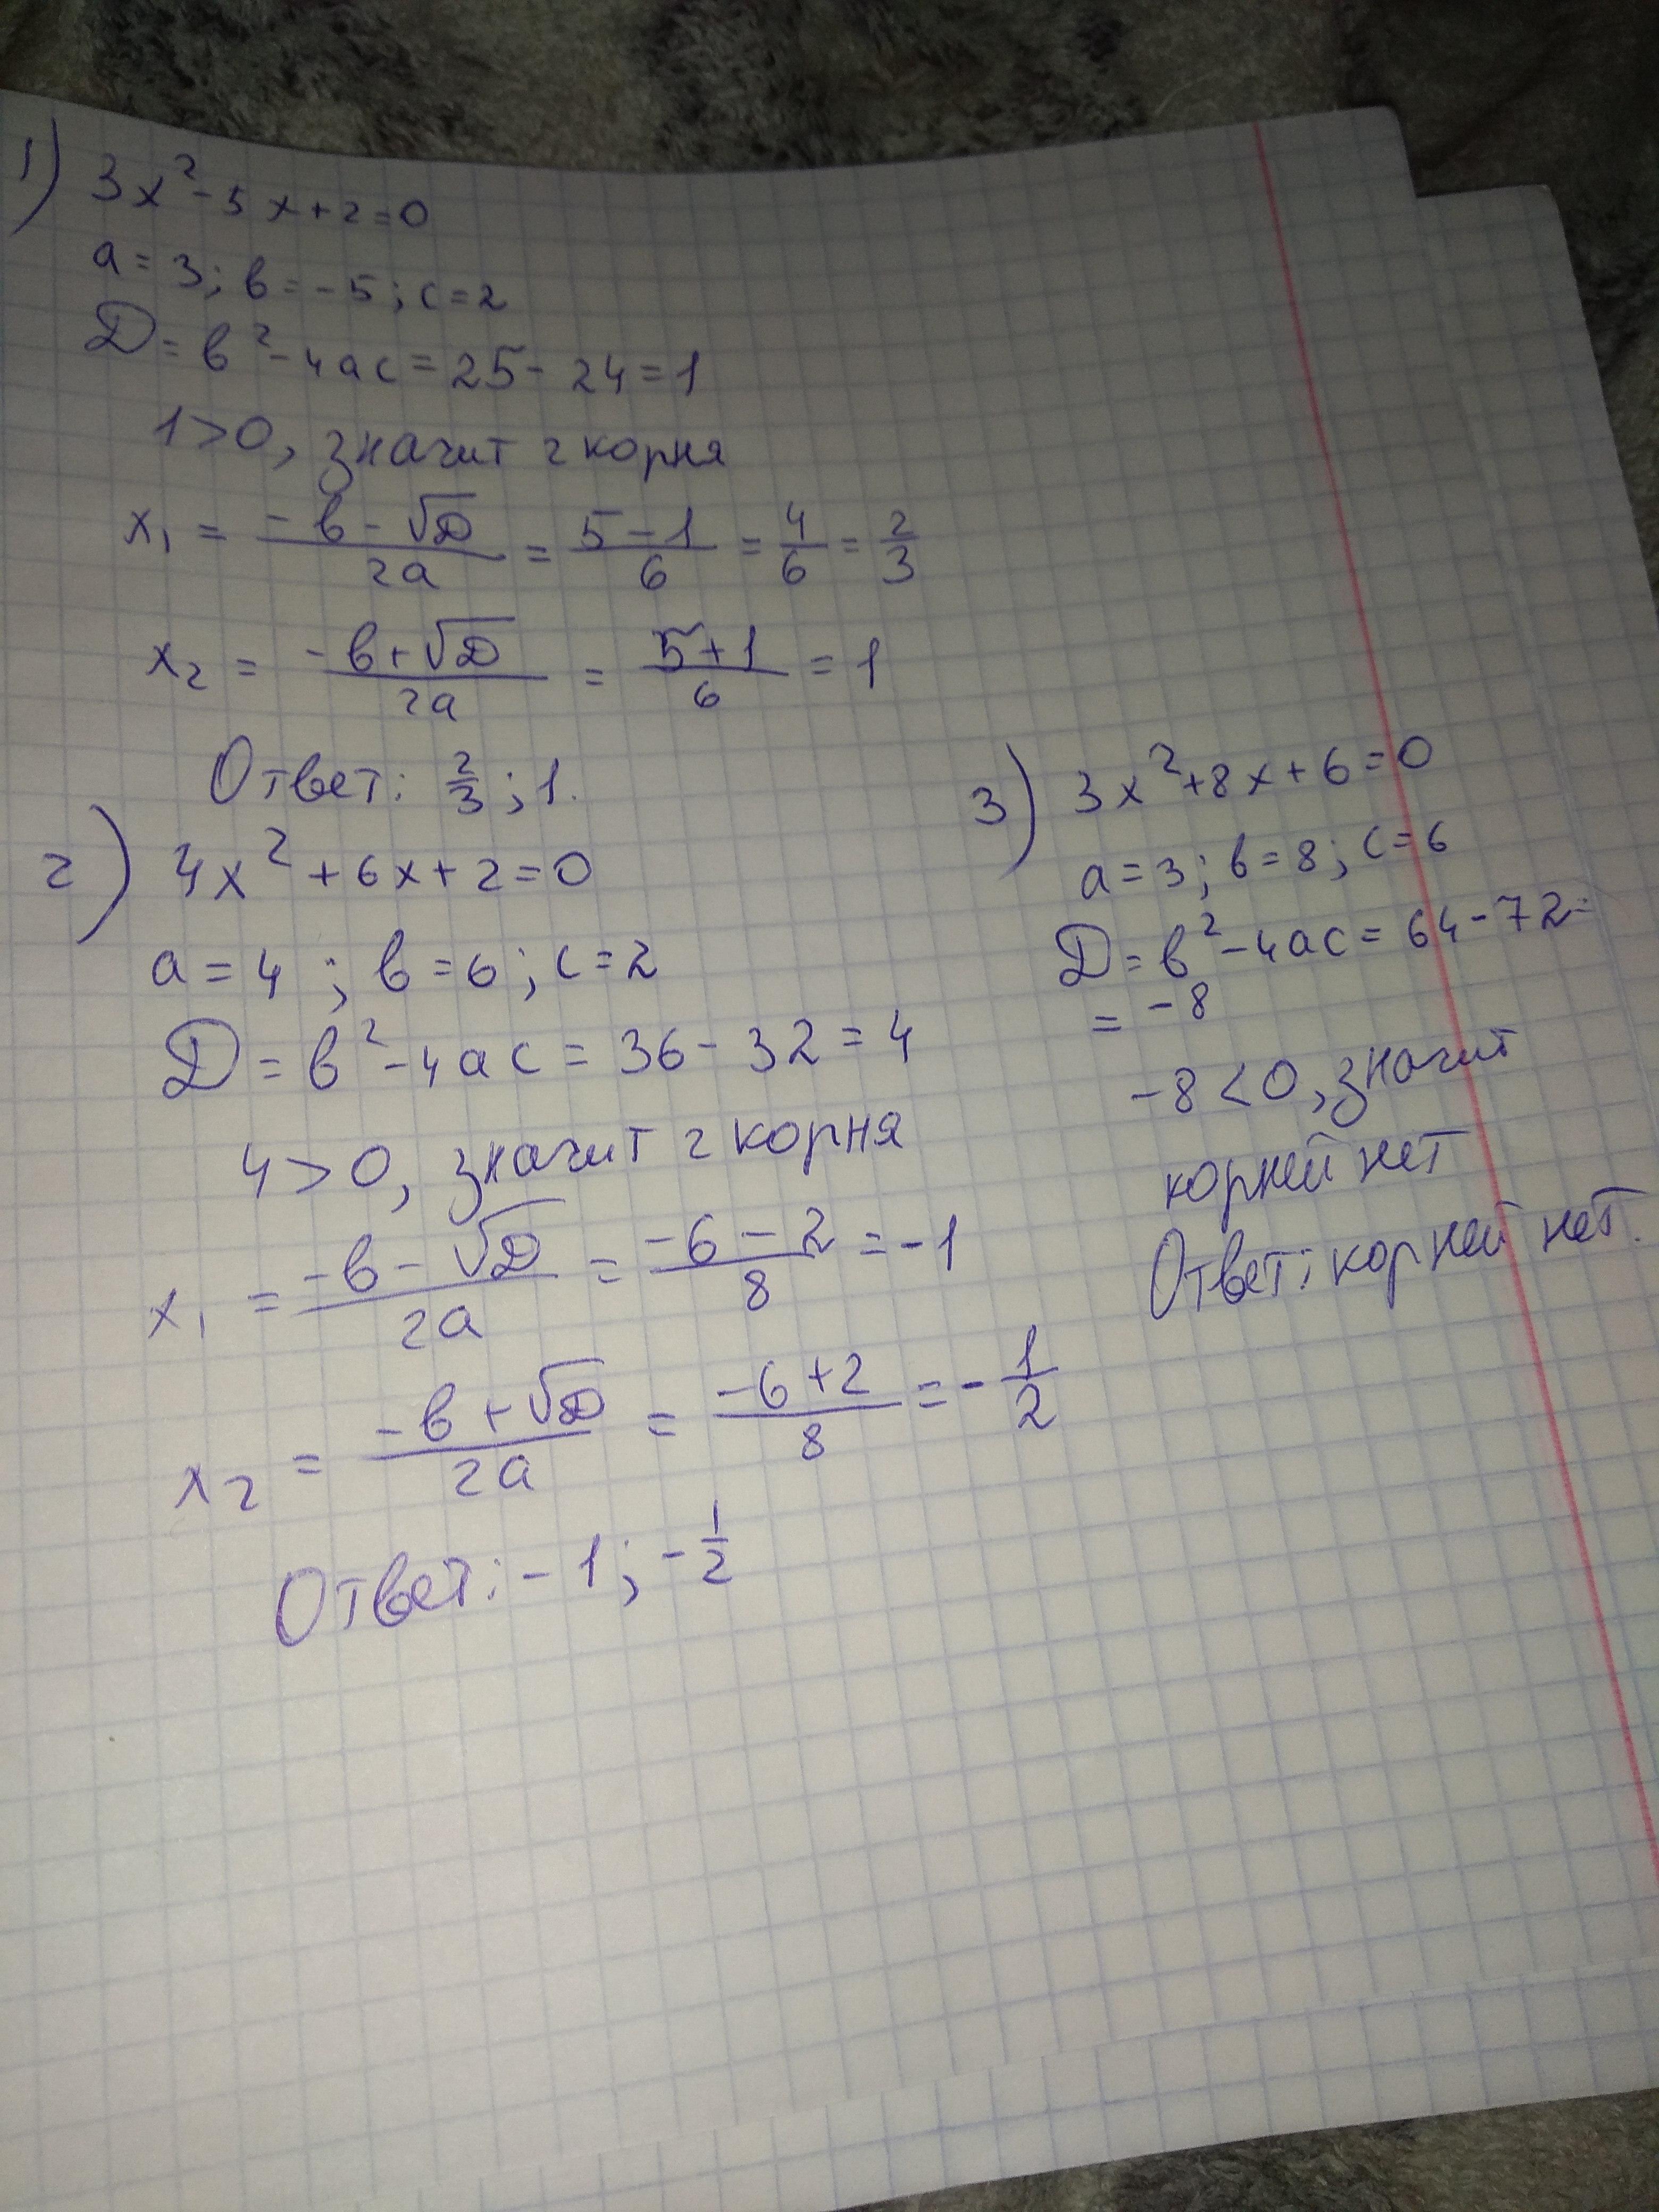 1) 3x² - 5x + 2 = 0
a = 3; b = -5; c = 2
D = b² - 4ac = 25 - 24 = 1
1 > 0, значит 2 корня
x₁ = (-b - √D)/2a = (5 - 1)/6 = 4/6 = 2/3
x₂ = (-b + √D)/2a = (5 + 1)/6 = 1
Ответ: 2/3; 1.
2) 4x² + 6x + 2 = 0
a = 4; b = 6; c = 2
D = b² - 4ac = 36 - 32 = 4
4 > 0, значит 2 корня
x₁ = (-b - √D)/2a = (-6 - 2)/8 = -1
x₂ = (-b + √D)/2a = (-6 + 2)/8 = -1/2
Ответ: -1; -1/2
3) 3x² + 8x + 6 = 0
a = 3; b = 8; c = 6
D = b² - 4ac = 64 - 72 =
= -8
-8 < 0, значит
корней нет
Ответ: корней нет.